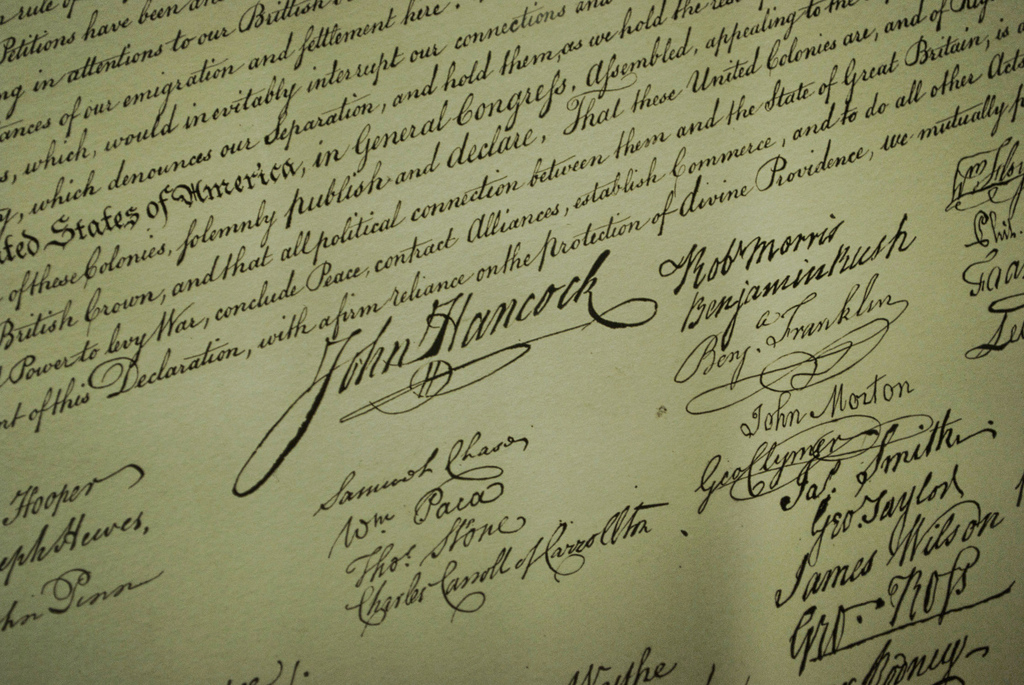 rule of
Petitions have been
ng in attentions to our Brittish
ances of our emigration and settlement here.
s, which, would inevitably interrupt our connections and
y, which denounces our Separation, and hold them, as we hold the res
ted States of America, in General Congress, Assembled, appealing to the
of these Colonies, solemnly publish and declare, That these United Colonies are, and of Righ
British Crown, and that all political connection between them and the State of Great Britain, is a
Power to levy War, conclude Peace, contract Alliances, establish Commerce, and to do all other Acts
nt of this Declaration, with a firm reliance on the protection of divine Providence, we mutually p
John Hancock
H
Hooper
eph Hewes,
hn Penn
Samuel Chase
Wm Paca
Thos. Stone
Charles Carroll of Carrollton
Wythe
Robt Morris
Benjamin Rush
Benj. Franklin
John Morton
Geo Clymer
Jas. Smith.
Geo. Taylor
James Wilson
Geo. Ross
Rodney
Phil.